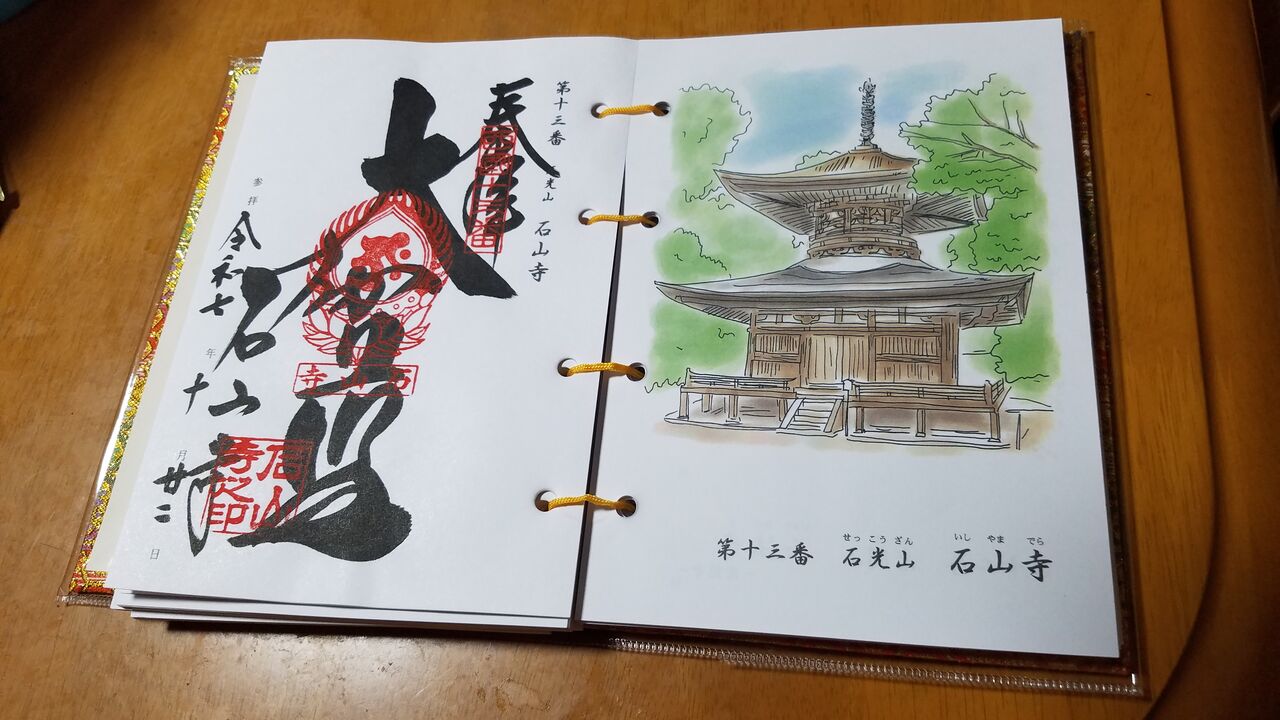 第十三番 光山 石山寺
奉拝
西國十三番
大
石山寺
石山寺
石山寺之印
参拝 令和七年十月廿二日
せっこうざん いしやまでら
第十三番 石光山 石山寺